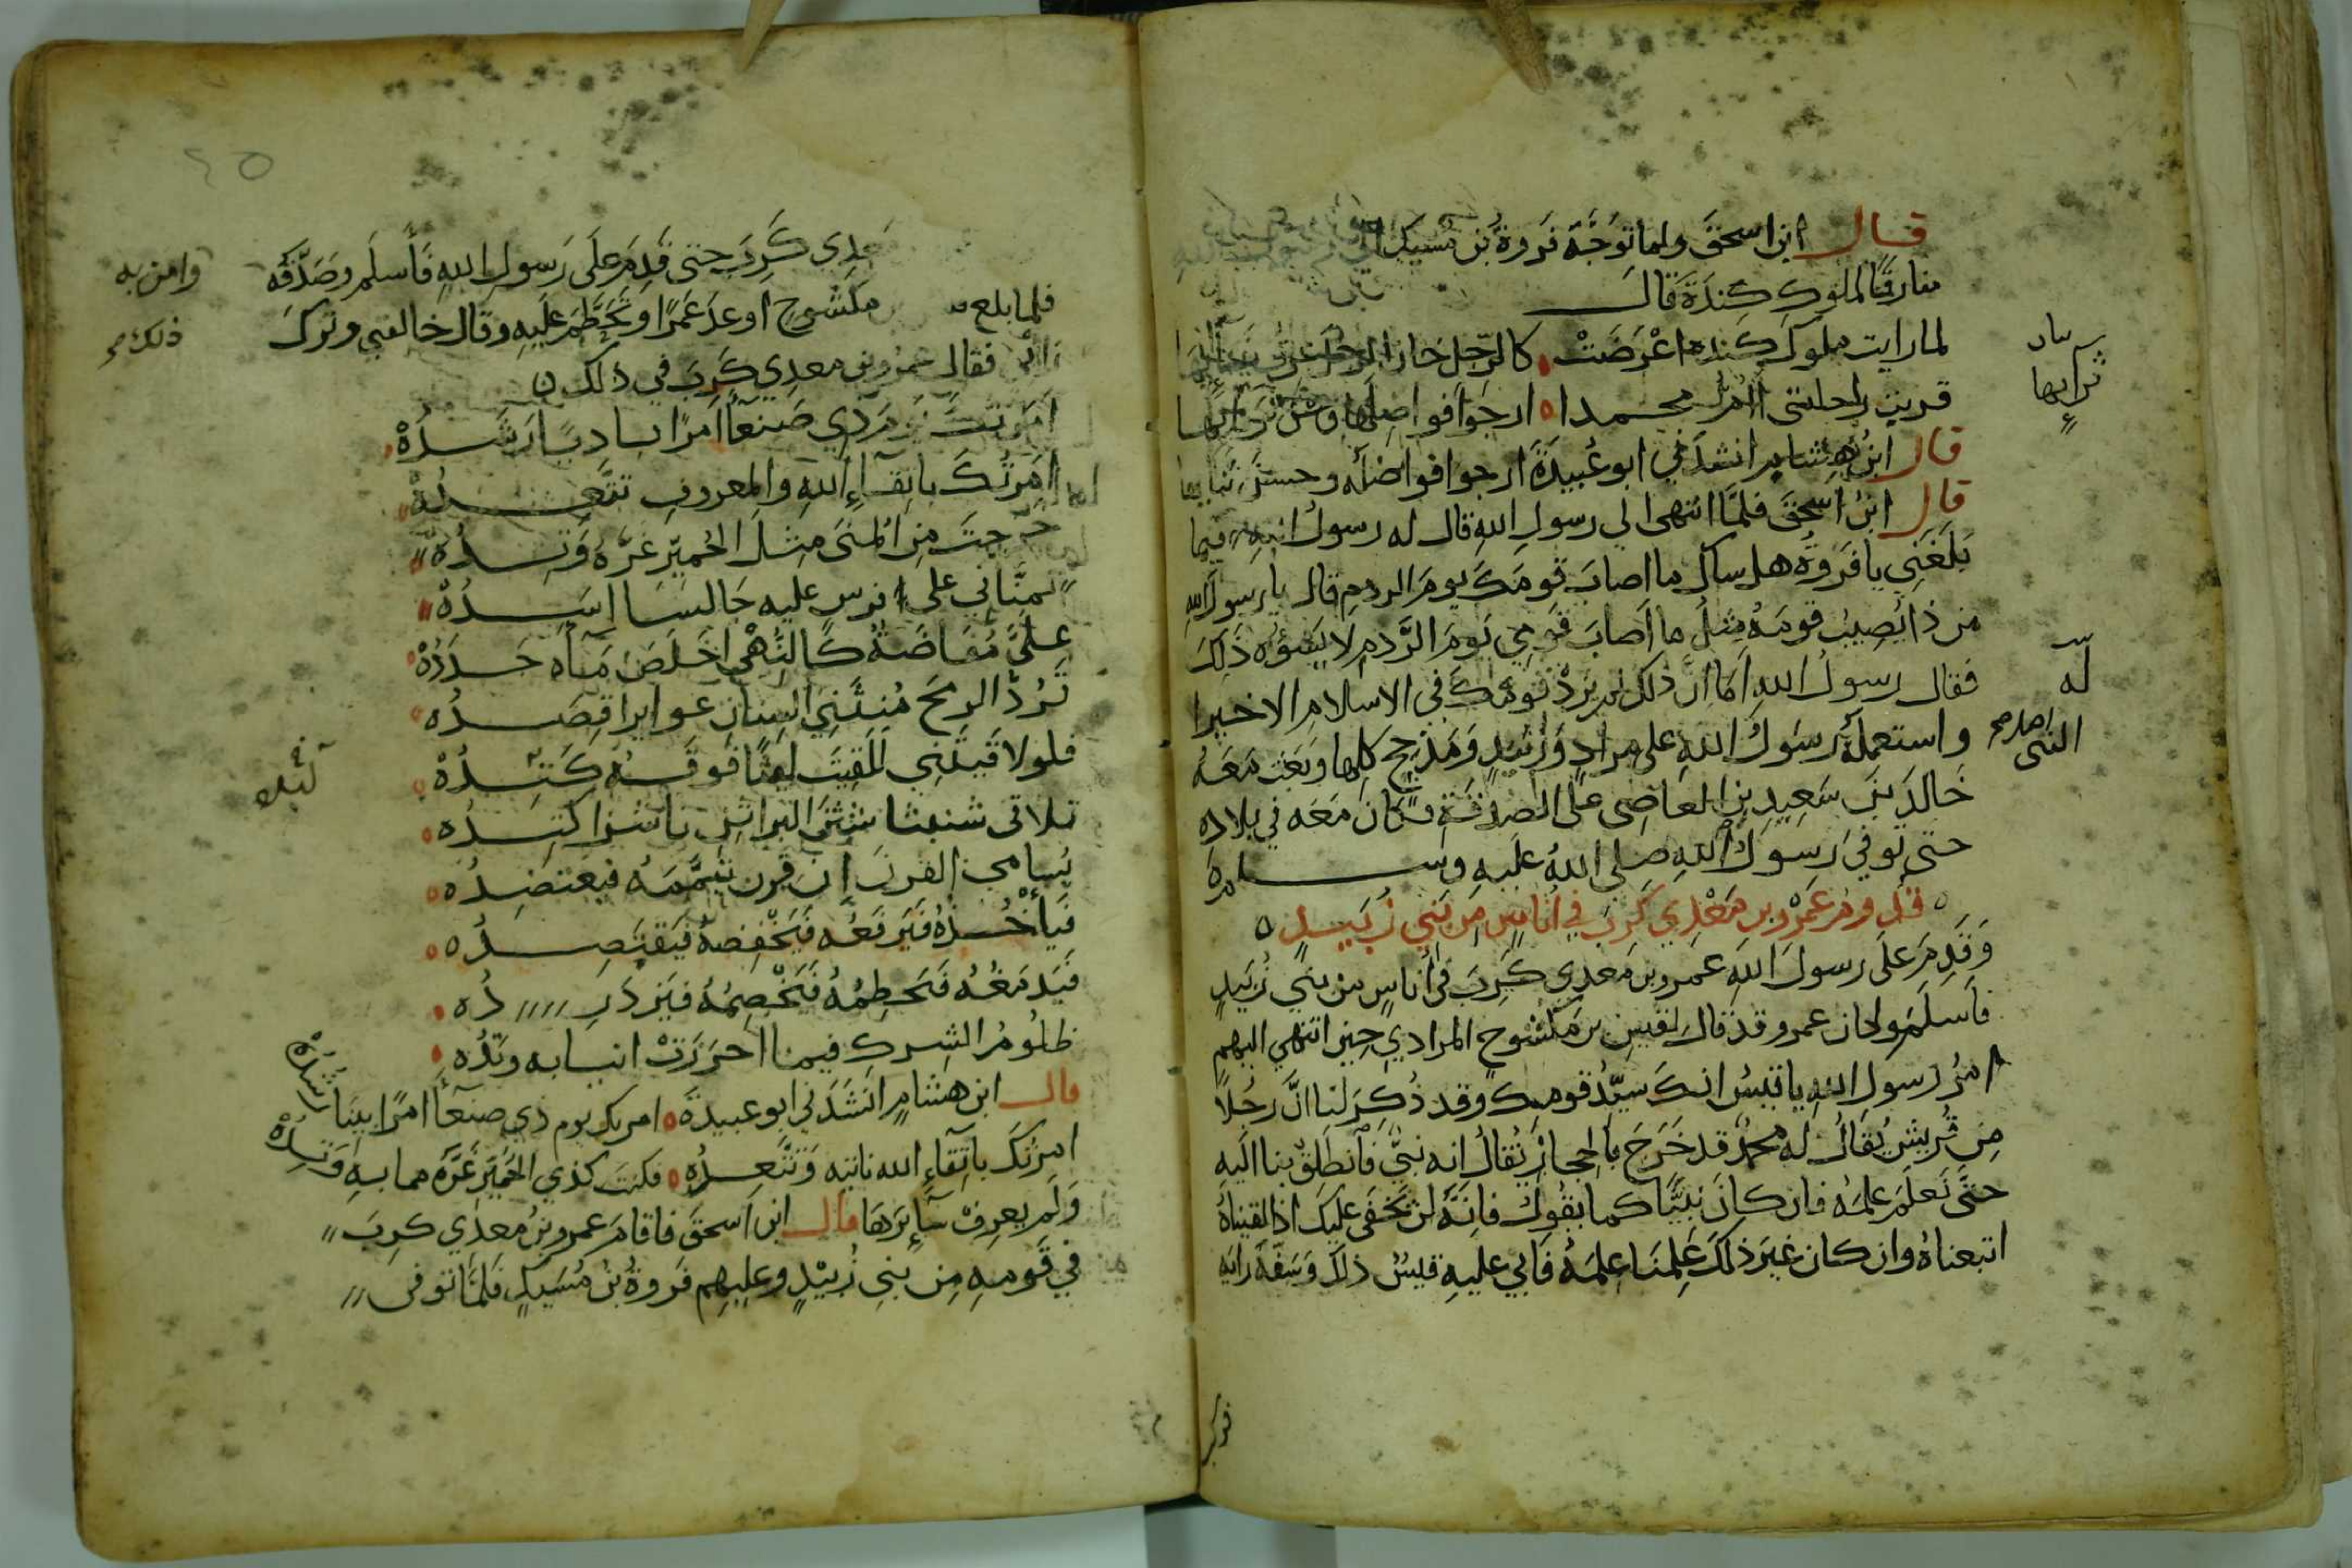 قال ابن اسحق ولما توجه فروة بن مسيك
مفارقا لملوك كندة قال
لما رايت ملوك كندة اعرضت كالرجل خان الرجل عرق
قربت راحلتي اؤم محمدا ارجوا فواضلها وحسن ثرائها
ثرائها
قال ابن هشام انشدني ابو عبيدة ارجوا فواضله وحسن ثنائها
قال ابن اسحق فلما انتهى الى رسول الله قال له رسول الله فيما
بلغني يا فروة هل ساك ما اصاب قومك يوم الردم قال يا رسول الله
من ذا يصيب قومه مثل ما اصاب قومي يوم الردم لا يسؤه ذلك
فقال رسول الله اما ان ذلك لم يزد قومك في الاسلام الا خيرا
له
واستعمله رسول الله على مراد وزبيد ومذحج كلها وبعث معه
النبي
خالد بن سعيد بن العاصي على الصدقة فكان معه في بلاده
حتى توفي رسول الله صلى الله عليه وسلم
قدوم عمرو بن معدي كرب في اناس من بني زبيد
وقدم على رسول الله عمرو بن معدي كرب في اناس من بني زبيد
فاسلم وكان عمرو قد قال لقيس بن مكشوح المرادي حين انتهى اليهم
امر رسول الله يا قيس انك سيد قومك وقد ذكر لنا ان رجلا
من قريش يقال له محمد قد خرج بالحجاز يقال انه نبي فانطلق بنا اليه
حتى نعلم علمه فان كان نبيا كما يقول فانه لن يخفى عليك اذا لقيناه
اتبعناه وان كان غير ذلك علمنا علمه فابي عليه قيس ذلك وسفه رايه
فركب
٢٥
معدي كرب حتى قدم على رسول الله فاسلم وصدقه وامن به
فلما بلغ مكشوح اوعد عمرا وتحطم عليه وقال خالفني وترك
ذلك
رائي فقال عمرو بن معدي كرب في ذلك
امرتك يوم ذي صنعا امرا باديا رشده
امرتك باتقاء الله والمعروف تتعده
خرجت من المنى مثل الحمير غره وتده
تمناني على فرس عليه جالسا اسده
علي مفاضة كالنهي اخلص ماه جدده
ترد الرمح منثني السنان عوايرا قصده
فلولا قيتني للقيت ليثا فوقه كتده
تلاقي شنبثا شثن البراثن ناشزا كتده
يسامي القرن ان قرن تيممه فيعتضده
فياخذه فيرفعه فيخفضه فيقتصده
فيدمغه فيحطمه فيخضمه فيزدرده
ظلوم الشرك فيما احرزت انيابه ويده
قال ابن هشام انشدني ابو عبيدة امرتك يوم ذي صنعا امرا بينا رشده
امرتك باتقاء الله تاتيه وتتعده فكنت كذي الحمير غره مما به وتده
ولم يعرف سائرها قال ابن اسحق فاقام عمرو بن معدي كرب
في قومه من بني زبيد وعليهم فروة بن مسيك فلما توفي